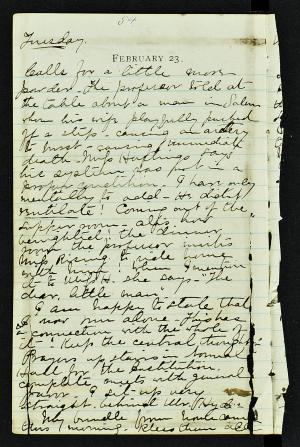 54
Tuesday.
FEBRUARY 23.
Calls for a little more
powder. The professor told at
the table about a man in Salem
when his wife playfully pushed
off a step - causing an artery
to burst - causing immediate
death. Miss Hastings says
his system was not in a
proper condition. I have only
mentally to add - He didn't
mutilate! Coming out of the
supper room - after
the dinner
from the professor invites
Miss Rising to ride home
with him! When I mention
it to Miss H. she says - "The
dear little man"
I am happy to state that
I now run alone. This has
connection with the whole of
it - "Keep the central thought"
Prayers up stairs - 
Hall for the Institution.
complete meets with general
favor. I sit up very
straight behind Mr.
My bundle from home came
this morning.